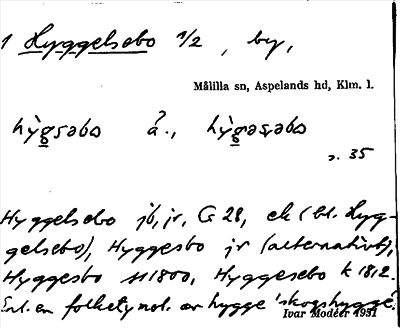 1 Hyggelsebo 1/2, by,
Målilla sn, Aspelands hd, Klm. l.
hỳgsəbo å., hỳgəsəbo
s. 35
Hyggelsebo jb, jr, G 28, ek (bl. Hyg-
gelsebo), Hyggesbo jr (alternativt),
Hyggesbo 1800, Hyggesebo k 1812.
Enl. en folketymol. av hygge 'skogshygge'.
Ivar Modéer 1931